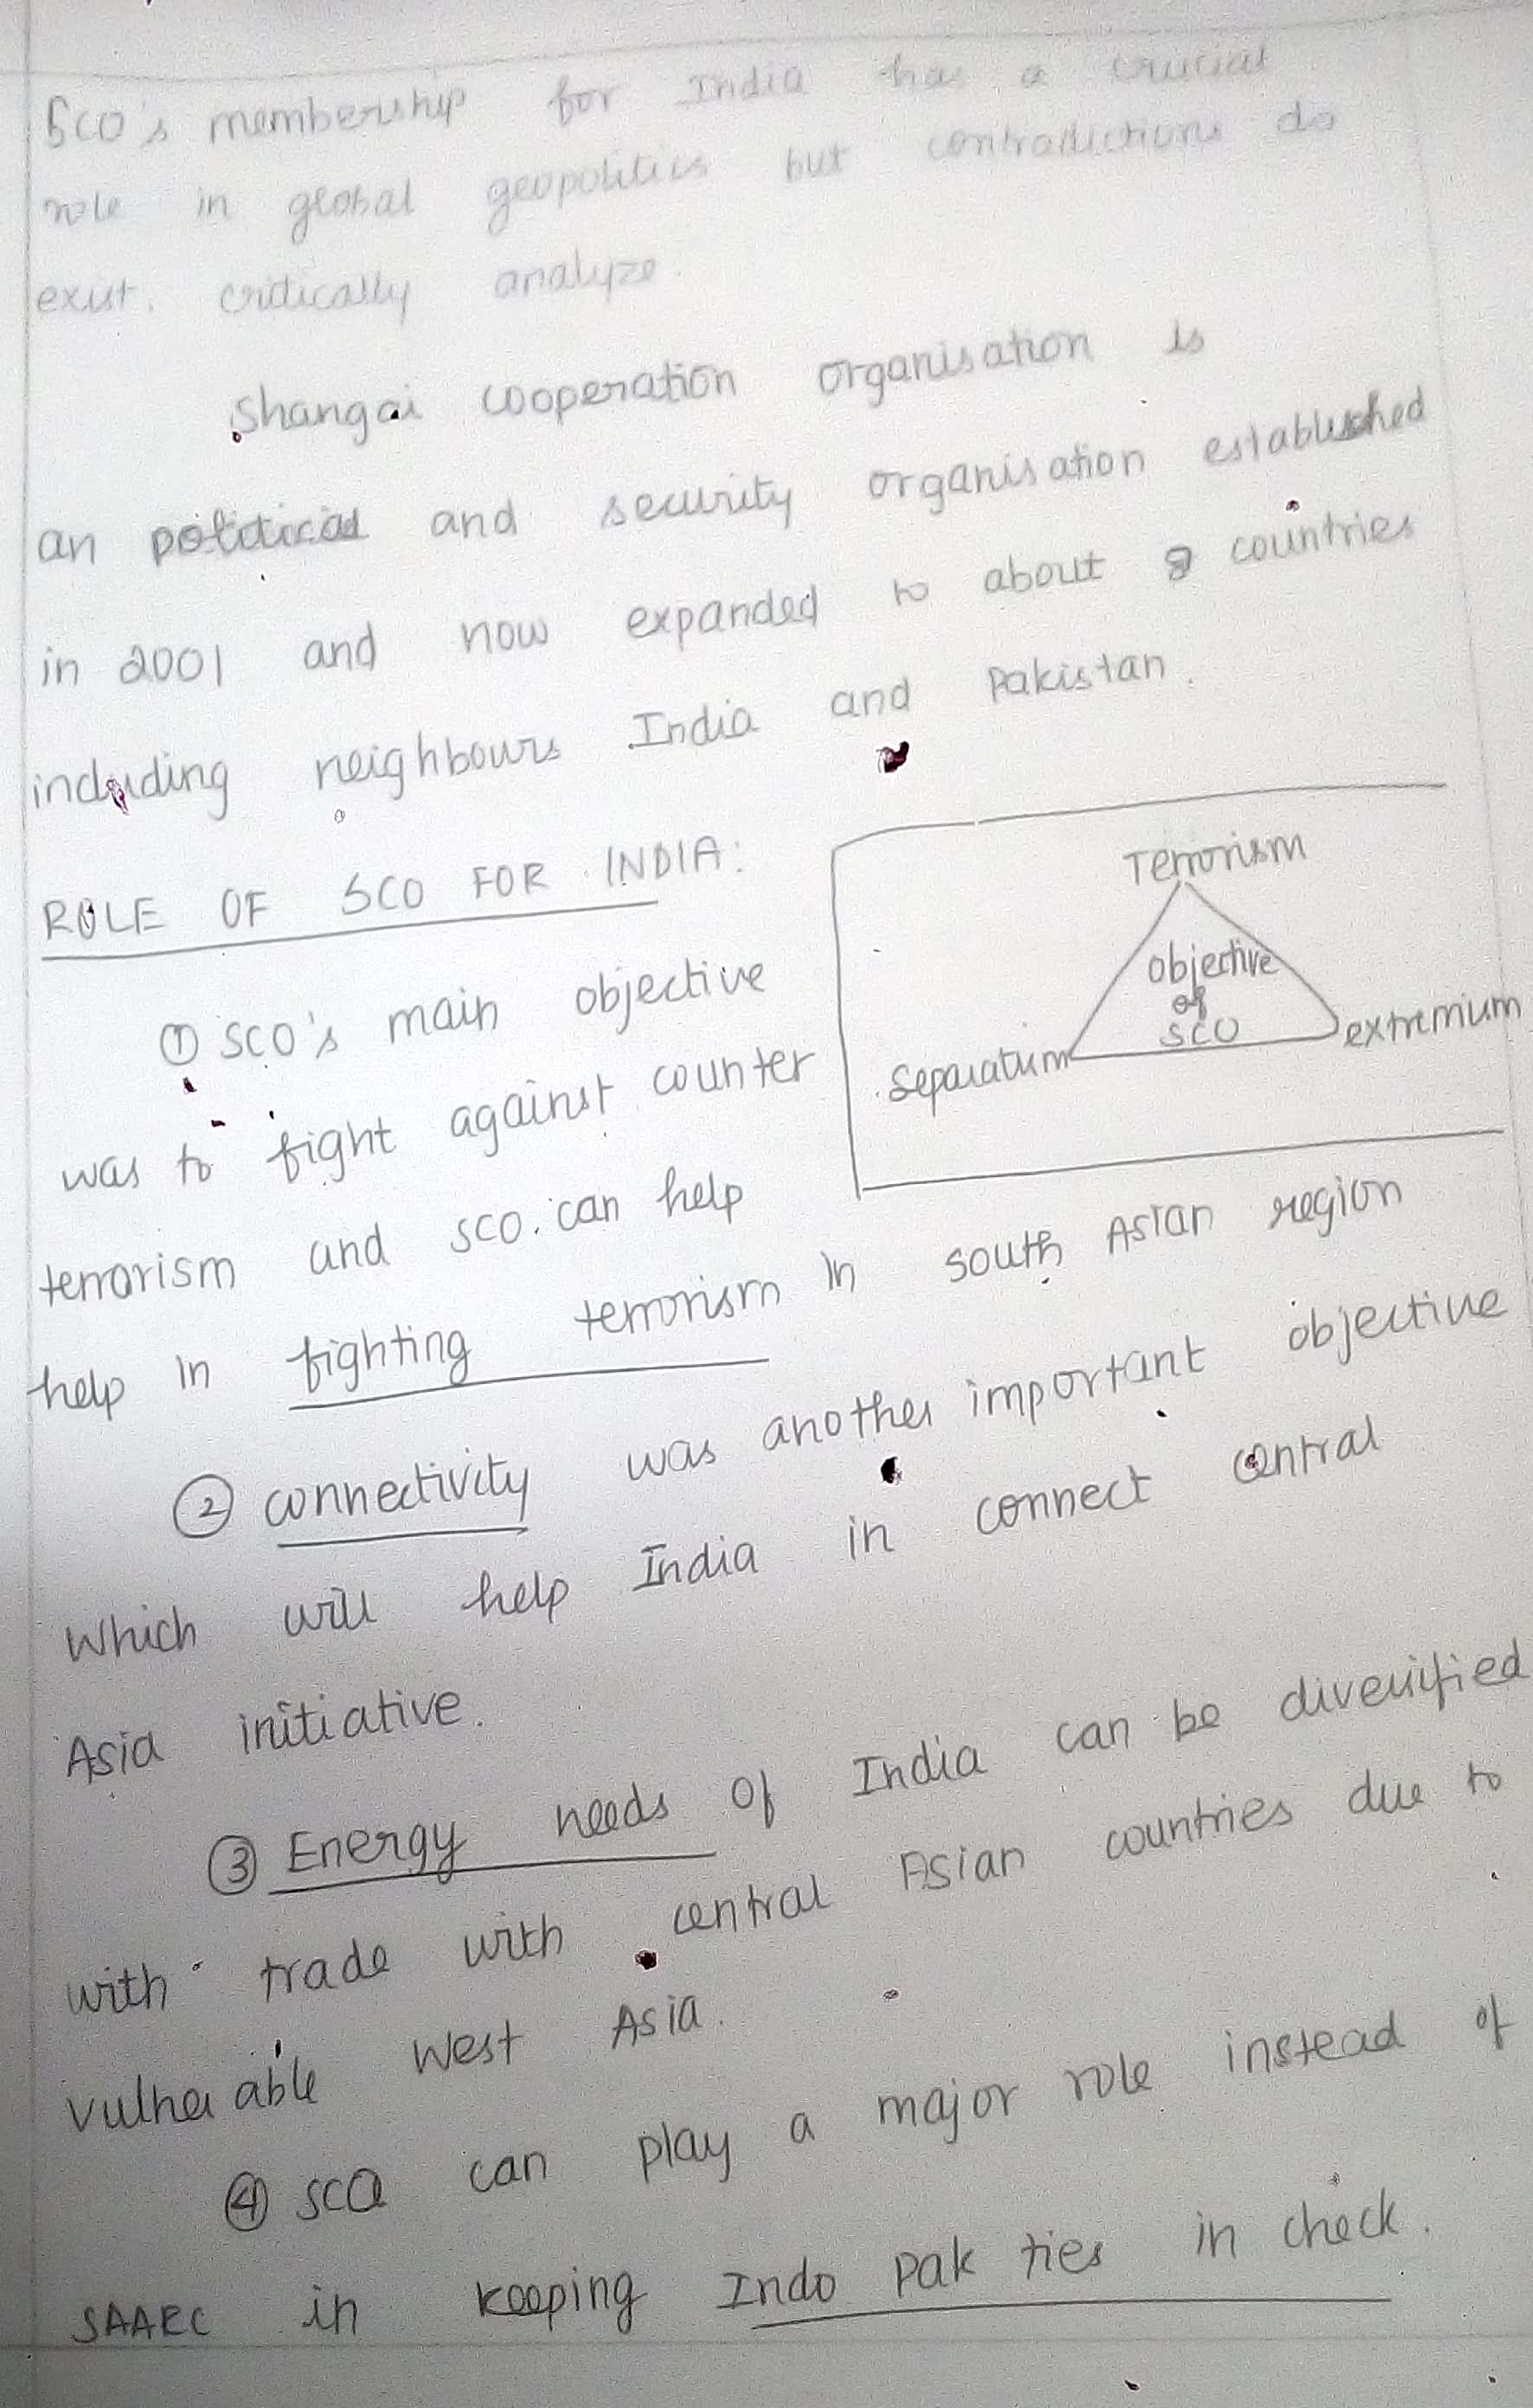 SCO's membership for India has a crucial
role in global geopolitics but contradictions do
exist. critically analyze.
Shangai cooperation organisation is
an political and security organisation established
in 2001 and now expanded to about 8 countries
including neighbours India and Pakistan.
ROLE OF SCO FOR INDIA:
Terrorism
objective
of
SCO
separatism
extremism
① SCO's main objective
was to fight against counter
terrorism and SCO can help
help in fighting terrorism in south Asian region
② connectivity was another important objective
which will help India in connect central
Asia initiative.
③ Energy needs of India can be diversified
with trade with central Asian countries due to
vulnerable West Asia.
④ SCO can play a major role instead of
SAARC in keeping Indo Pak ties in check.